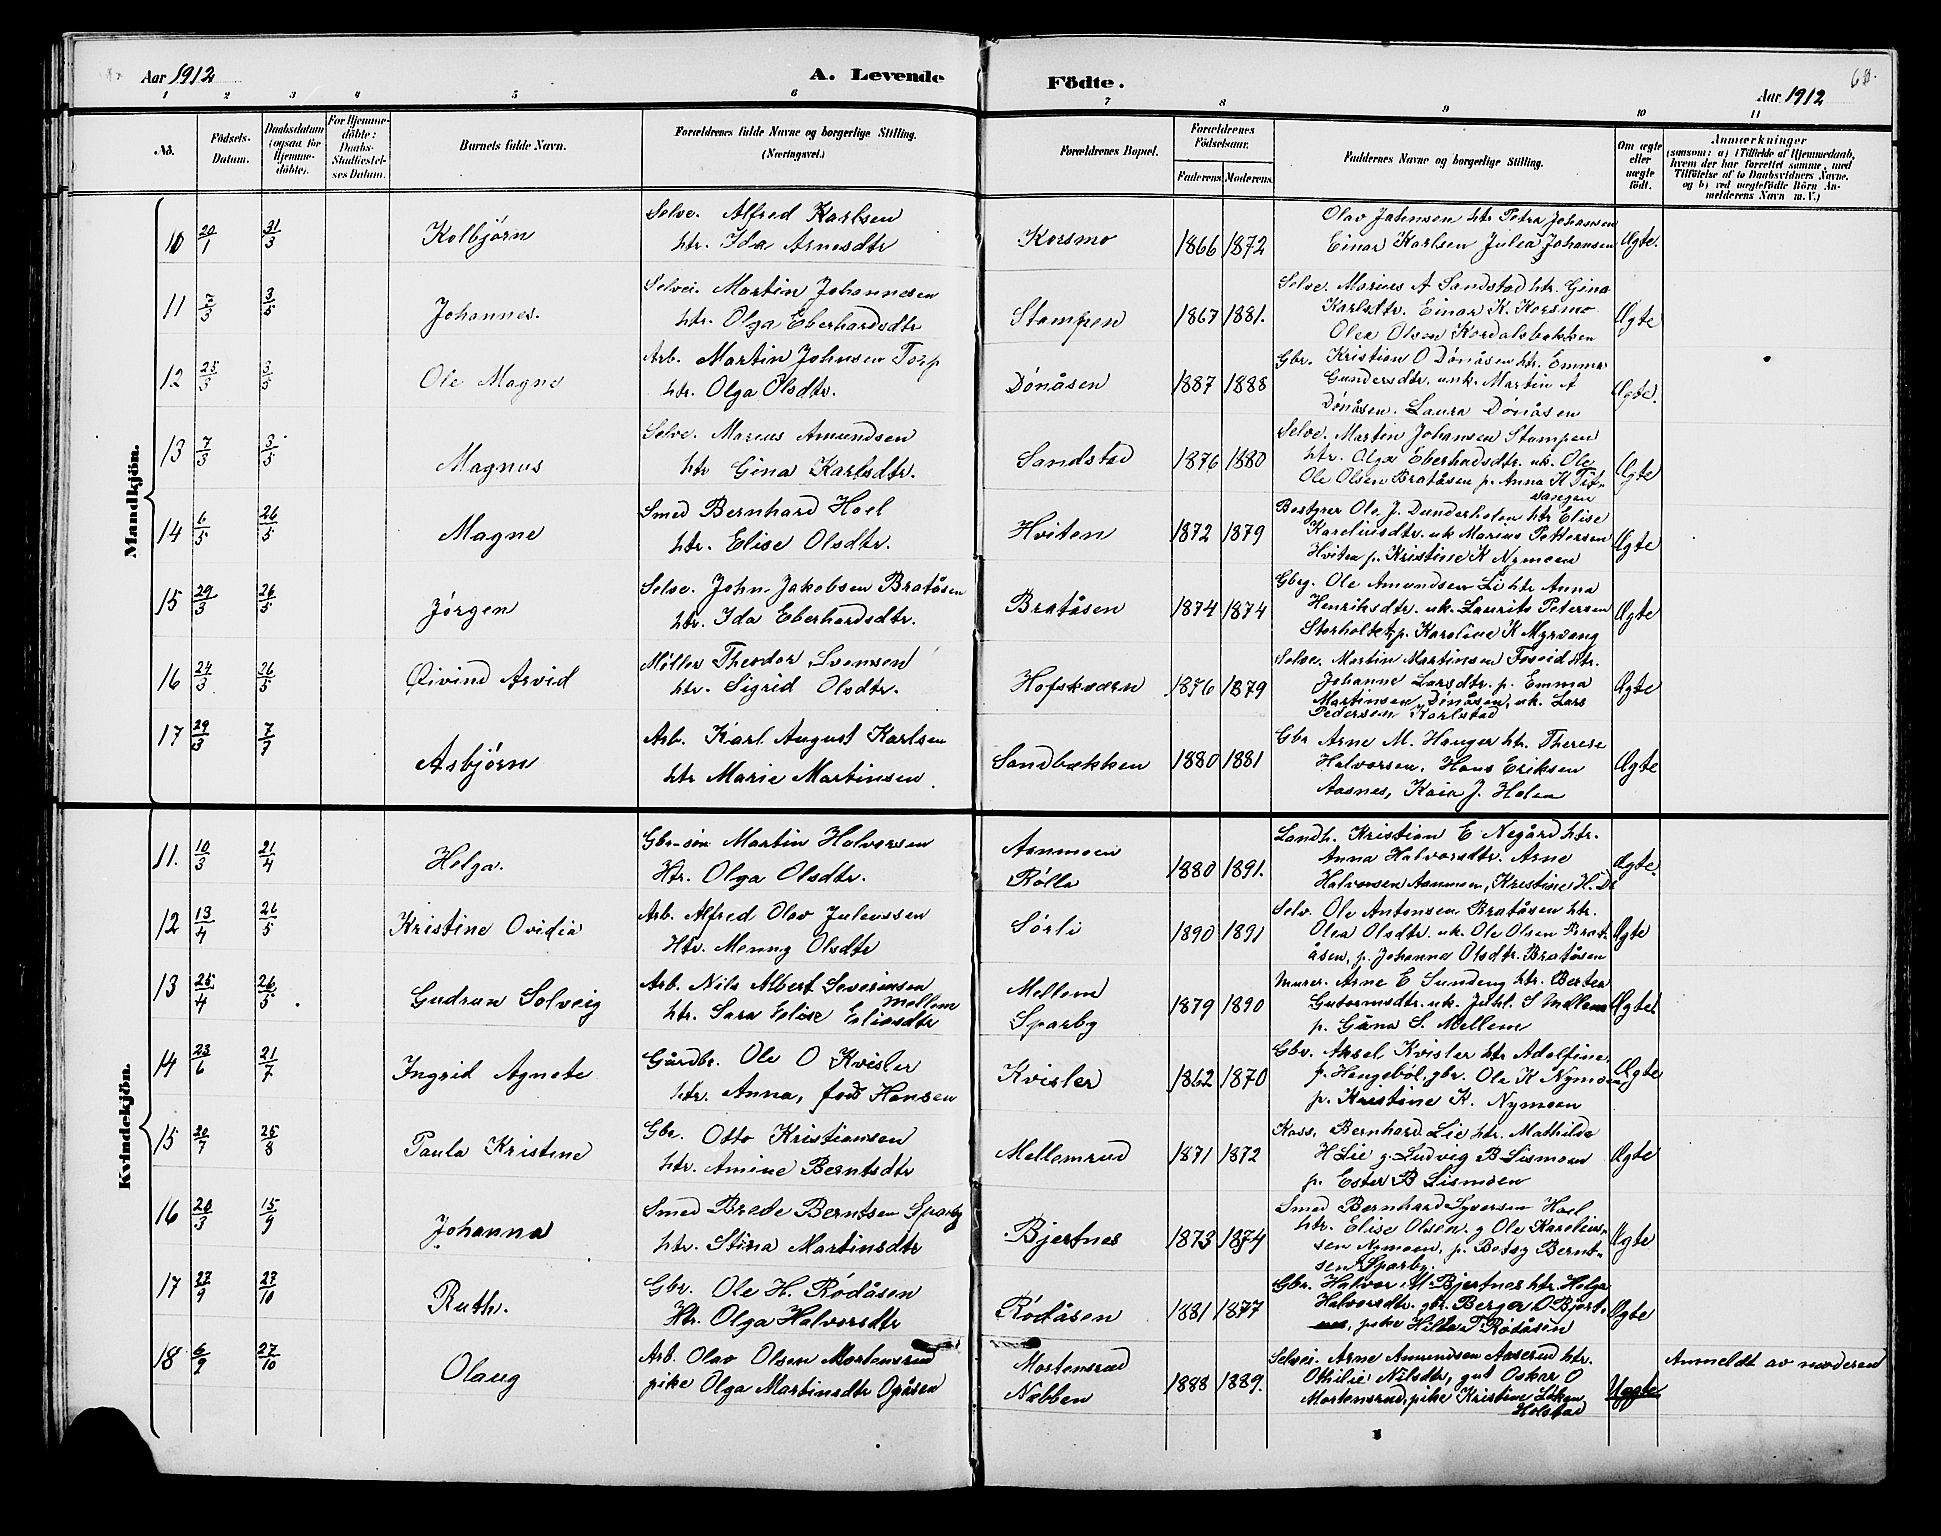 Aar 1912
A. Levende
Födte.
68.
Aar 1912
1 2 3 4 5 6 7 8 9 10 11
No.
Födsels-
Datum.
Daabsdatum
(ogsaa for
Hjemme-
döbte).
For Hjemme-
döbte:
Daabs-
Stadfæstel-
ses Datum.
Barnets fulde Navn.
Forældrenes fulde Navne og borgerlige Stilling.
(Næringsvei.)
Forældrenes Bopæl.
Forældrenes
Födselsaar.
Faderens Moderens
Faddernes Navne og borgerlige Stilling.
Om ægte
eller
uægte
födt.
Anmærkninger
(saasom: a) i Tilfælde af Hjemmedaab,
hvem der har forrettet samme, med
Tilföielse af to Daabsvidners Navne.
og b) ved uægtefödte Börn An-
melderens Navn m. V.)
Mandkjön.
10 20/1 31/3 Kolbjörn
Selve. Alfred Karlsen
htr. Ida Arnesdtr
Korsmo 1866 1872
Olav Jahnsen htr Petra Johansen
Einar Karlsen Julea Johansen
Ægte.
11 7/3 3/5 Johannes.
Selvei. Martin Johannesen
htr. Olga Eberhardsdtr
Stampen 1867 1881.
Selve. Marius A Sandstad htr. Gina
Karlsdtr. Einar K. Korsmo
Olea Olsen Kordalsbakken
Ægte
12 25/3 3/5 Ole Magne
Arb. Martin Johnsen Torp
htr. Olga Olsdtr.
Dönåsen 1887 1888
Gbr. Kristian O Dönåsen htr. Emma
Gundersdtr. u.k. Martin A
Dönåsen. Laura Dönåsen
Ægte.
13 7/3 3/5 Magnus
Selve. Marius Amundsen
htr Gina Karlsdtr.
Sandstad 1876 1880
Selve. Martin Johansen Stampen
htr. Olga Eberhadsdtr. uk. Ole
Ole Olsen Bratåsen p. Anna K Tøs-
vangen
Ægte
14 6/5 26/5 Magne
Smed Bernhard Hoel
htr. Elise Olsdtr.
Hviten 1872 1879
Bestyrer Ole J. Dunderholen htr Elise
Kareliusdtr. uk Marius Pettersen
Hviten p. Kristine K Nymoen
Ægte
15 29/3 26/5 Jørgen
Selve. John Jakobsen Bratåsen
htr. Ida Eberhardsdtr.
Bratåsen 1874 1874
Gbrg. Ole Amundsen Li htr Anna
Henriksdtr. uk. Laurits Petersen
Storholtet p. Karoline K Myrvang
Ægte
16 24/3 26/5 Øivind Arvid
Møller Theodor Svensen
htr. Sigrid Olsdtr.
Hofskværn 1876 1879
Selve. Martin Martinsen Foseid htr.
Johanne Larsdtr. p. Emma
Martinsen Dönåsen, uk. Lars
Pedersen Karlstad
Ægte
17 29/3 7/7 Asbjörn
Arb. Karl August Karlsen
htr Marie Martinsen.
Sandbækken 1880 1881
Gbr Arne M. Hauger htr. Therese
Halvorsen. Hans Eriksen
Aasnes, Kaia J. Holen
Ægte
Kvindekjön.
11. 10/3 21/4 Helga.
Gbr-søn Martin Halvorsen
Htr. Olga Olsdtr.
Aanmoen
Rölla 1880 1891.
Landh. Kristian E Negård htr.
Anna Halvorsdtr. Arne
Halvorsen Aanmoen, Kristine H. Do
Ægte.
12 13/4 26/5 Kristine Ovidia
Arb. Alfred Olav Juliussen
Htr. Menny Olsdtr
Sörli 1890 1891
Selv. Ole Antonsen Bratåsen htr.
Olea Olsdtr. uk. Ole Olsen Brat-
åsen, p. Johanna Olsdtr. Bratåsen
Ægte
13 25/4 26/5 Gudrun Solveig
Arb. Nils Albert Severinsen
Mellem
htr. Sara Elise Eliasdtr
Mellem
Sparby 1879 1890
Murer. Arne E Sundeng htr. Bertea
Gutormsdtr. uk. Juhl. S Mellem
p. Gåna S. Mellem
Ægte
14 23/6 21/7 Ingrid Agnete
Gårdbr. Ole O Kvisler
htr. Anna, född Hansen
Kvisler 1862 1870
Gbr. Aksel Kvisler htr Adolfine,
f. Haugeböl, gbr. Ole K Nymoen
p. Kristine K. Nymoen
Ægte
15 20/7 25/8 Paula Kristine
Gbr. Otto Kristiansen
htr. Amine Berntsdtr
Mellemrud 1871 1872
Kass. Bernhard Lie htr. Mathilde
H Lie g. Ludvig B Lismoen
p. Ester B Lismoen
Ægte
16 20/3 15/9 Johanna
Smed Brede Berntsen Sparby
htr. Stina Martinsdtr
Bjertnes 1873 1874
Smed Bernhard Syversen Hoel
htr. Elise Olsen. g Ole Karelius-
sen Nymoen, p. Betsy Bernt-
sen Sparby.
Ægte
17 27/9 27/10 Ruth.
Gbr. Ole H. Rödåsen
Htr. Olga Halvorsdtr
Rödåsen 1881 1877
Gbr. Halvor M. Bjertnes htr. Helga
Halvorsdtr. gbr. Berger O Bjert-
nes, pike Hilda T. Rödåsen
Ægte
18 6/9 27/10 Olaug
Arb. Olav Olsen Mortensrud
pike Olga Martinsdtr Ogåsen
Mortensrud
Nabben 1888 1889.
Selvei. Arne Amundsen Aaserud htr.
Othilie Nilsdtr, gut Oskar O
Mortensrud, pike Kristine Løken
Holstad
Uægte
Anmeldt av moderen